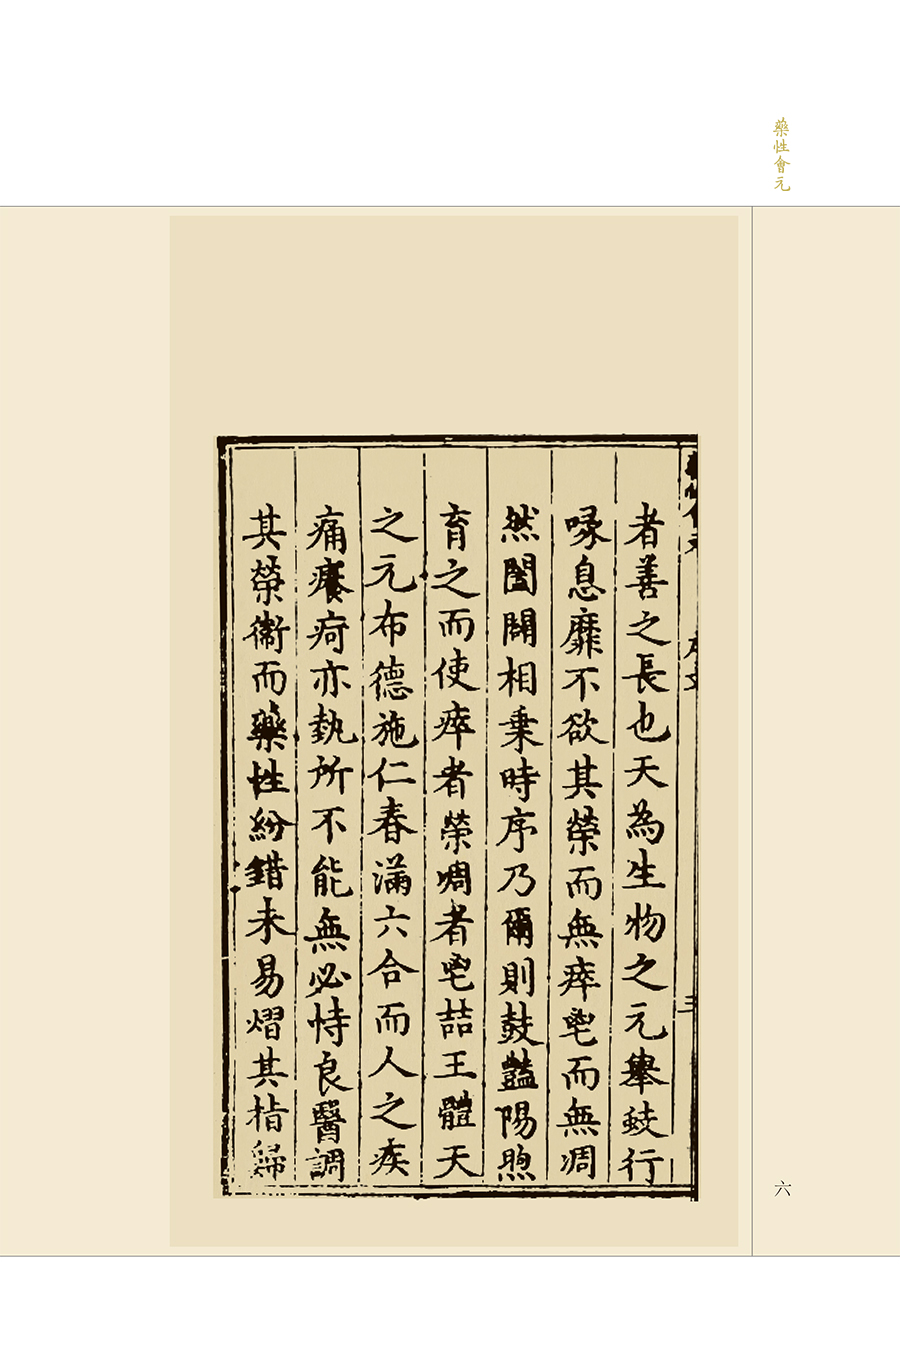 藥性會元
者善之長也天為生物之元舉蚑行
喙息靡不欲其榮而無瘁鬯而無凋
然闔闢相乗時序乃爾則鼓豔陽煦
育之而使瘁者榮啁者鬯喆王體天
之元布德施仁春滿六合而人之疾
痛癢疴亦埶所不能無必恃良醫調
其榮衞而藥性紛錯未易熠其栺歸
六